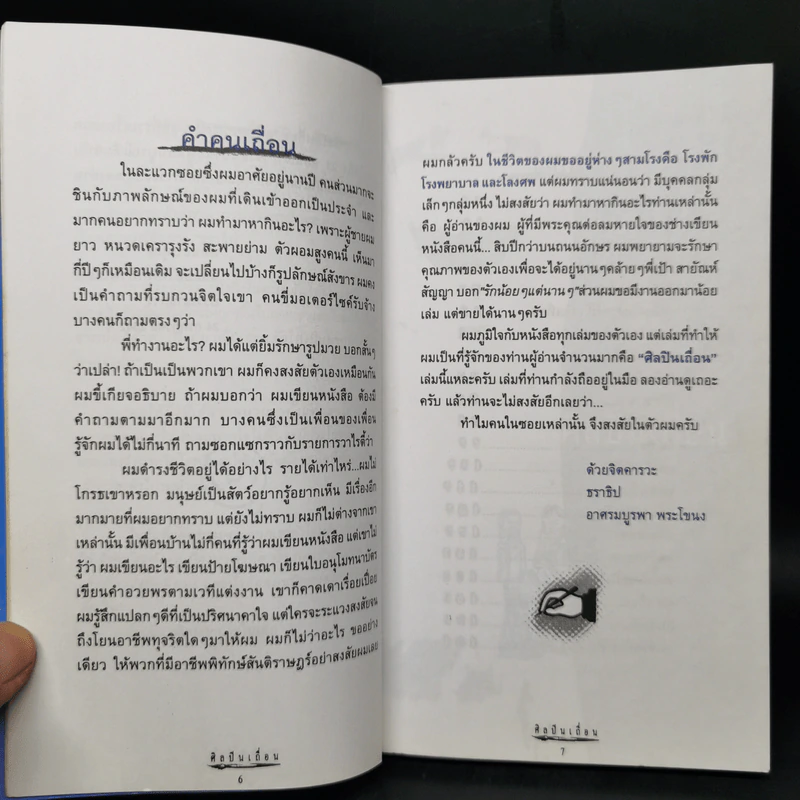 คำคนเถื่อน
ในละแวกซอยซึ่งผมอาศัยอยู่นานปี คนส่วนมากจะ
ชินกับภาพลักษณ์ของผมที่เดินเข้าออกเป็นประจำ และ
มากคนอยากทราบว่า ผมทำมาหากินอะไร? เพราะผู้ชายผม
ยาว หนวดเครารุงรัง สะพายย่าม ตัวผอมสูงคนนี้ เห็นมา
กี่ปีๆก็เหมือนเดิม จะเปลี่ยนไปบ้างก็รูปลักษณ์สังขาร ผมคง
เป็นคำถามที่รบกวนจิตใจเขา คนขี่มอเตอร์ไซค์รับจ้าง
บางคนก็ถามตรงๆว่า
พี่ทำงานอะไร? ผมได้แต่ยิ้มรักษารูปมวย บอกสั้นๆ
ว่าเปล่า! ถ้าเป็นเป็นพวกเขา ผมก็คงสงสัยตัวเองเหมือนกัน
ผมขี้เกียจอธิบาย ถ้าผมบอกว่า ผมเขียนหนังสือ ต้องมี
คำถามตามมาอีกมาก บางคนซึ่งเป็นเพื่อนของเพื่อน
รู้จักผมได้ไม่กี่นาที ถามซอกแซกราวกับรายการวาไรตี้ว่า
ผมดำรงชีวิตอยู่ได้อย่างไร รายได้เท่าไหร่...ผมไม่
โกรธเขาหรอก มนุษย์เป็นสัตว์อยากรู้อยากเห็น มีเรื่องอีก
มากมายที่ผมอยากทราบ แต่ยังไม่ทราบ ผมก็ไม่ต่างจากเขา
เหล่านั้น มีเพื่อนบ้านไม่กี่คนที่รู้ว่าผมเขียนหนังสือ แต่เขาไม่
รู้ว่า ผมเขียนอะไร เขียนป้ายโฆษณา เขียนใบอนุโมทนาบัตร
เขียนคำอวยพรตามเวทีแต่งงาน เขาก็คาดเดาเรื่อยเปื่อย
ผมรู้สึกแปลกๆดีที่เป็นปริศนาคาใจ แต่ใครจะระแวงสงสัยจน
ถึงโยนอาชีพทุจริตใดๆมาให้ผม ผมก็ไม่ว่าอะไร ขออย่าง
เดียว ให้พวกที่มีอาชีพพิทักษ์สันติราษฎร์อย่าสงสัยผมเลย
ศิลปินเถื่อน
6
ผมกลัวครับ ในชีวิตของผมขออยู่ห่างๆสามโรงคือ โรงพัก
โรงพยาบาล และโลงศพ แต่ผมทราบแน่นอนว่า มีบุคคลกลุ่ม
เล็กๆกลุ่มหนึ่ง ไม่สงสัยว่า ผมทำมาหากินอะไรท่านเหล่านั้น
คือ ผู้อ่านของผม ผู้ที่มีพระคุณต่อลมหายใจของช่างเขียน
หนังสือคนนี้... สิบปีกว่าบนถนนอักษร ผมพยายามจะรักษา
คุณภาพของตัวเองเพื่อจะได้อยู่นานๆคล้ายๆพี่เป้า สายัณห์
สัญญา บอก"รักน้อยๆแต่นานๆ"ส่วนผมขอมีงานออกมาน้อย
เล่ม แต่ขายได้นานๆครับ
ผมภูมิใจกับหนังสือทุกเล่มของตัวเอง แต่เล่มที่ทำให้
ผมเป็นที่รู้จักของท่านผู้อ่านจำนวนมากคือ "ศิลปินเถื่อน"
เล่มนี้แหละครับ เล่มที่ท่านกำลังถืออยู่ในมือ ลองอ่านดูเถอะ
ครับ แล้วท่านจะไม่สงสัยอีกเลยว่า...
ทำไมคนในซอยเหล่านั้น จึงสงสัยในตัวผมครับ
ด้วยจิตคารวะ
ธราธิป
อาศรมบูรพา พระโขนง
ศิลปินเถื่อน
7